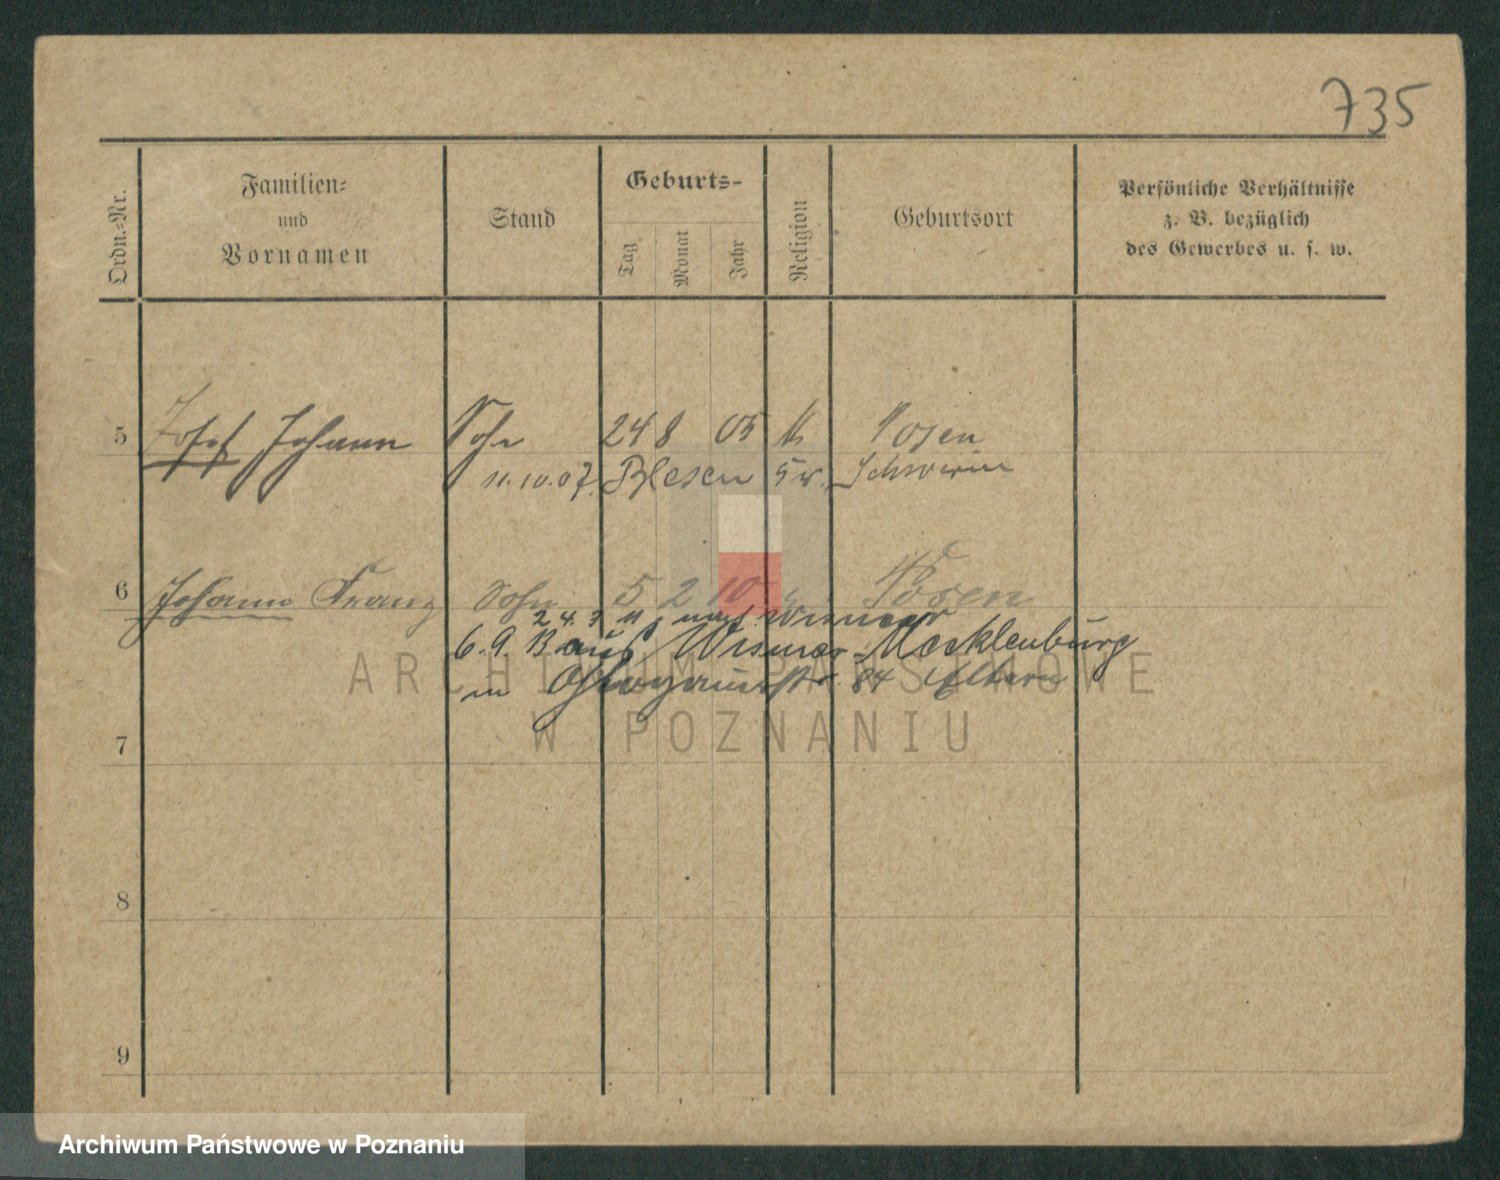 735
Ordn.-Nr.
Familien-
und
Vornamen
Stand
Geburts-
Tag
Monat
Jahr
Religion
Geburtsort
Persönliche Verhältnisse
z. B. bezüglich
des Gewerbes u. s. w.
5 Josef Johann Sohn 24 8 05 k Posen
11.10.07. Blesen Schwerin
6 Johann Franz Sohn 5 2 10 " Posen
24. 3 11 nach Wismar
6.9.13 aus Wismar-Mecklenburg
in Glogauerstr. 84 Eltern
7
8
9
ARCHIWUM PAŃSTWOWE
W POZNANIU
Archiwum Państwowe w Poznaniu